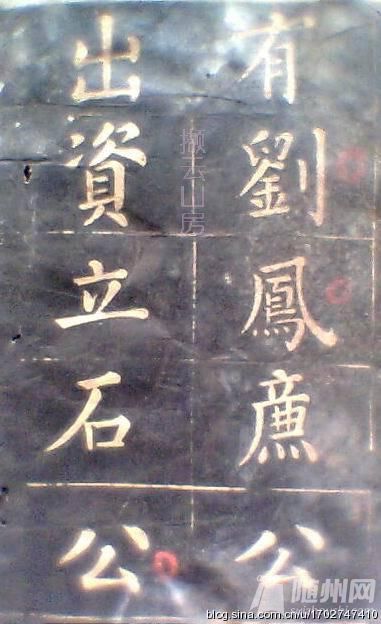 有劉鳳廌公
出資立石公
撤云山房
随州网
blog.sina.com.cn/u/1702747410